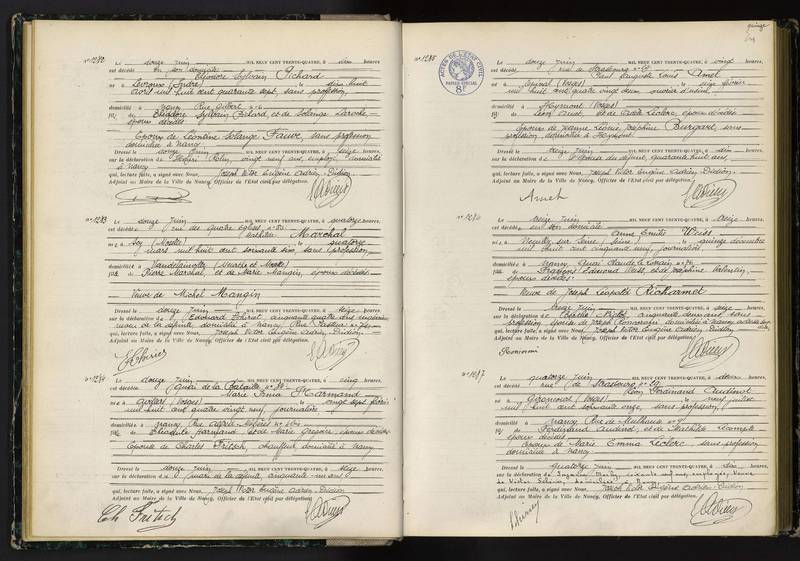 N° 1282
Le douze juin MIL NEUF CENT TRENTE-QUATRE, à dix heures,
est décédé en son domicile
Sylvain Pichard
né à Levroux (Indre) le dix huit
mil huit cent quarante sept, sans profession,
domicilié à Nancy, Rue Gilbert n° 6
fils de Sylvain Pichard, et de Solange
époux décédés
Epoux de Léontine Solange Fauve, sans profession
domiciliée à Nancy
Dressé le douze juin MIL NEUF CENT TRENTE-QUATRE, à seize heures,
sur la déclaration de vingt neuf ans, employé, domicilié
à Nancy
qui, lecture faite, a signé avec Nous, Joseph Victor Eugène Adrien Didion
Adjoint au Maire de la Ville de Nancy, Officier de l'Etat civil par délégation.
1283
Le douze juin MIL NEUF CENT TRENTE-QUATRE, à quatorze heures,
est décédée rue des quatre églises n° 33
Marchal
née à (Moselle) le quatorze
mars mil huit cent soixante six, sans profession,
domiciliée à Vandelainville (Meurthe et Moselle)
fille de Pierre Marchal, et de Marie Mangin, époux décédés
Veuve de Michel Mangin
Dressé le douze juin MIL NEUF CENT TRENTE-QUATRE, à seize heures,
sur la déclaration de Edouard Thiriet, cinquante quatre ans, ingénieur
de la défunte, domicilié à Nancy, Rue Pasteur n°
qui, lecture faite, a signé avec Nous, Joseph Victor Eugène Adrien Didion
Adjoint au Maire de la Ville de Nancy, Officier de l'Etat civil par délégation.
N° 1284
Le douze juin MIL NEUF CENT TRENTE-QUATRE, à cinq heures,
est décédée quai de la Bataille n°
Marie Irma Harmand
née à (Vosges) le vingt sept février
mil huit cent quatre vingt neuf, journalière
domiciliée à Nancy, Rue n°
fille de Harmand et de Marie Grégoire, époux décédés
Epouse de Charles Fritsch, chauffeur, domicilié à Nancy
Dressé le douze juin MIL NEUF CENT TRENTE-QUATRE, à seize heures,
sur la déclaration de mari de la défunte, cinquante un ans
qui, lecture faite, a signé avec Nous, Joseph Victor Eugène Adrien Didion
Adjoint au Maire de la Ville de Nancy, Officier de l'Etat civil par délégation.
Ch Fritsch
quinze
ACTES DE L'ÉTAT CIVIL
PAPIER SPÉCIAL
N° 1285
Le douze juin MIL NEUF CENT TRENTE-QUATRE, à vingt heures,
est décédé rue de Strasbourg n°
Paul Auguste Louis Amet
né à Epinal (Vosges) le seize février
mil huit cent quatre vingt deux, ouvrier d'usine
domicilié à Haymont (Vosges)
fils de Léon Amet, et de Leclerc, époux décédés
époux de Jeanne Josephine Burgart, sans
profession, domiciliée à Haymont
Dressé le treize juin MIL NEUF CENT TRENTE-QUATRE, à dix heures,
sur la déclaration de du défunt, quarante huit ans,
qui, lecture faite, a signé avec Nous, Joseph Victor Eugène Adrien Didion
Adjoint au Maire de la Ville de Nancy, Officier de l'Etat civil par délégation.
Amet
N° 1286
Le treize juin MIL NEUF CENT TRENTE-QUATRE, à seize heures,
est décédée en son domicile
Anne Emilie Weiss
née à Neuilly sur Seine (Seine) le quinze décembre
mil huit cent cinquante neuf, journalière
domiciliée à Nancy, Quai Claude le Lorrain n° 76
fille de François Edmond Weiss, et de Joséphine Valentin,
époux décédés
Veuve de Joseph Léopold Richarmet
Dressé le treize juin MIL NEUF CENT TRENTE-QUATRE, à seize heures,
sur la déclaration de Berthe cinquante deux ans, sans
profession, épouse de Joseph domiciliée à Nancy
qui, lecture faite, a signé avec Nous, Joseph Victor Eugène Adrien Didion
Adjoint au Maire de la Ville de Nancy, Officier de l'Etat civil par délégation.
N° 1287
Le quatorze juin MIL NEUF CENT TRENTE-QUATRE, à deux heures,
est décédé rue de Strasbourg n° 29
Léon Ferdinand Audinot
né à Giromenil (Vosges) le neuf juillet
mil huit cent soixante onze, sans profession,
domicilié à Nancy, Rue de Mulhouse n° 9
fils de Ferdinand Audinot, et de Mathilde
époux décédés
époux de Marie Emma Leclerc, sans profession
domiciliée à Nancy
Dressé le quatorze juin MIL NEUF CENT TRENTE-QUATRE, à dix heures,
sur la déclaration de soixante ans, employée, Veuve
de Victor domiciliée à Nancy
qui, lecture faite, a signé avec Nous, Joseph Victor Eugène Adrien Didion
Adjoint au Maire de la Ville de Nancy, Officier de l'Etat civil par délégation.